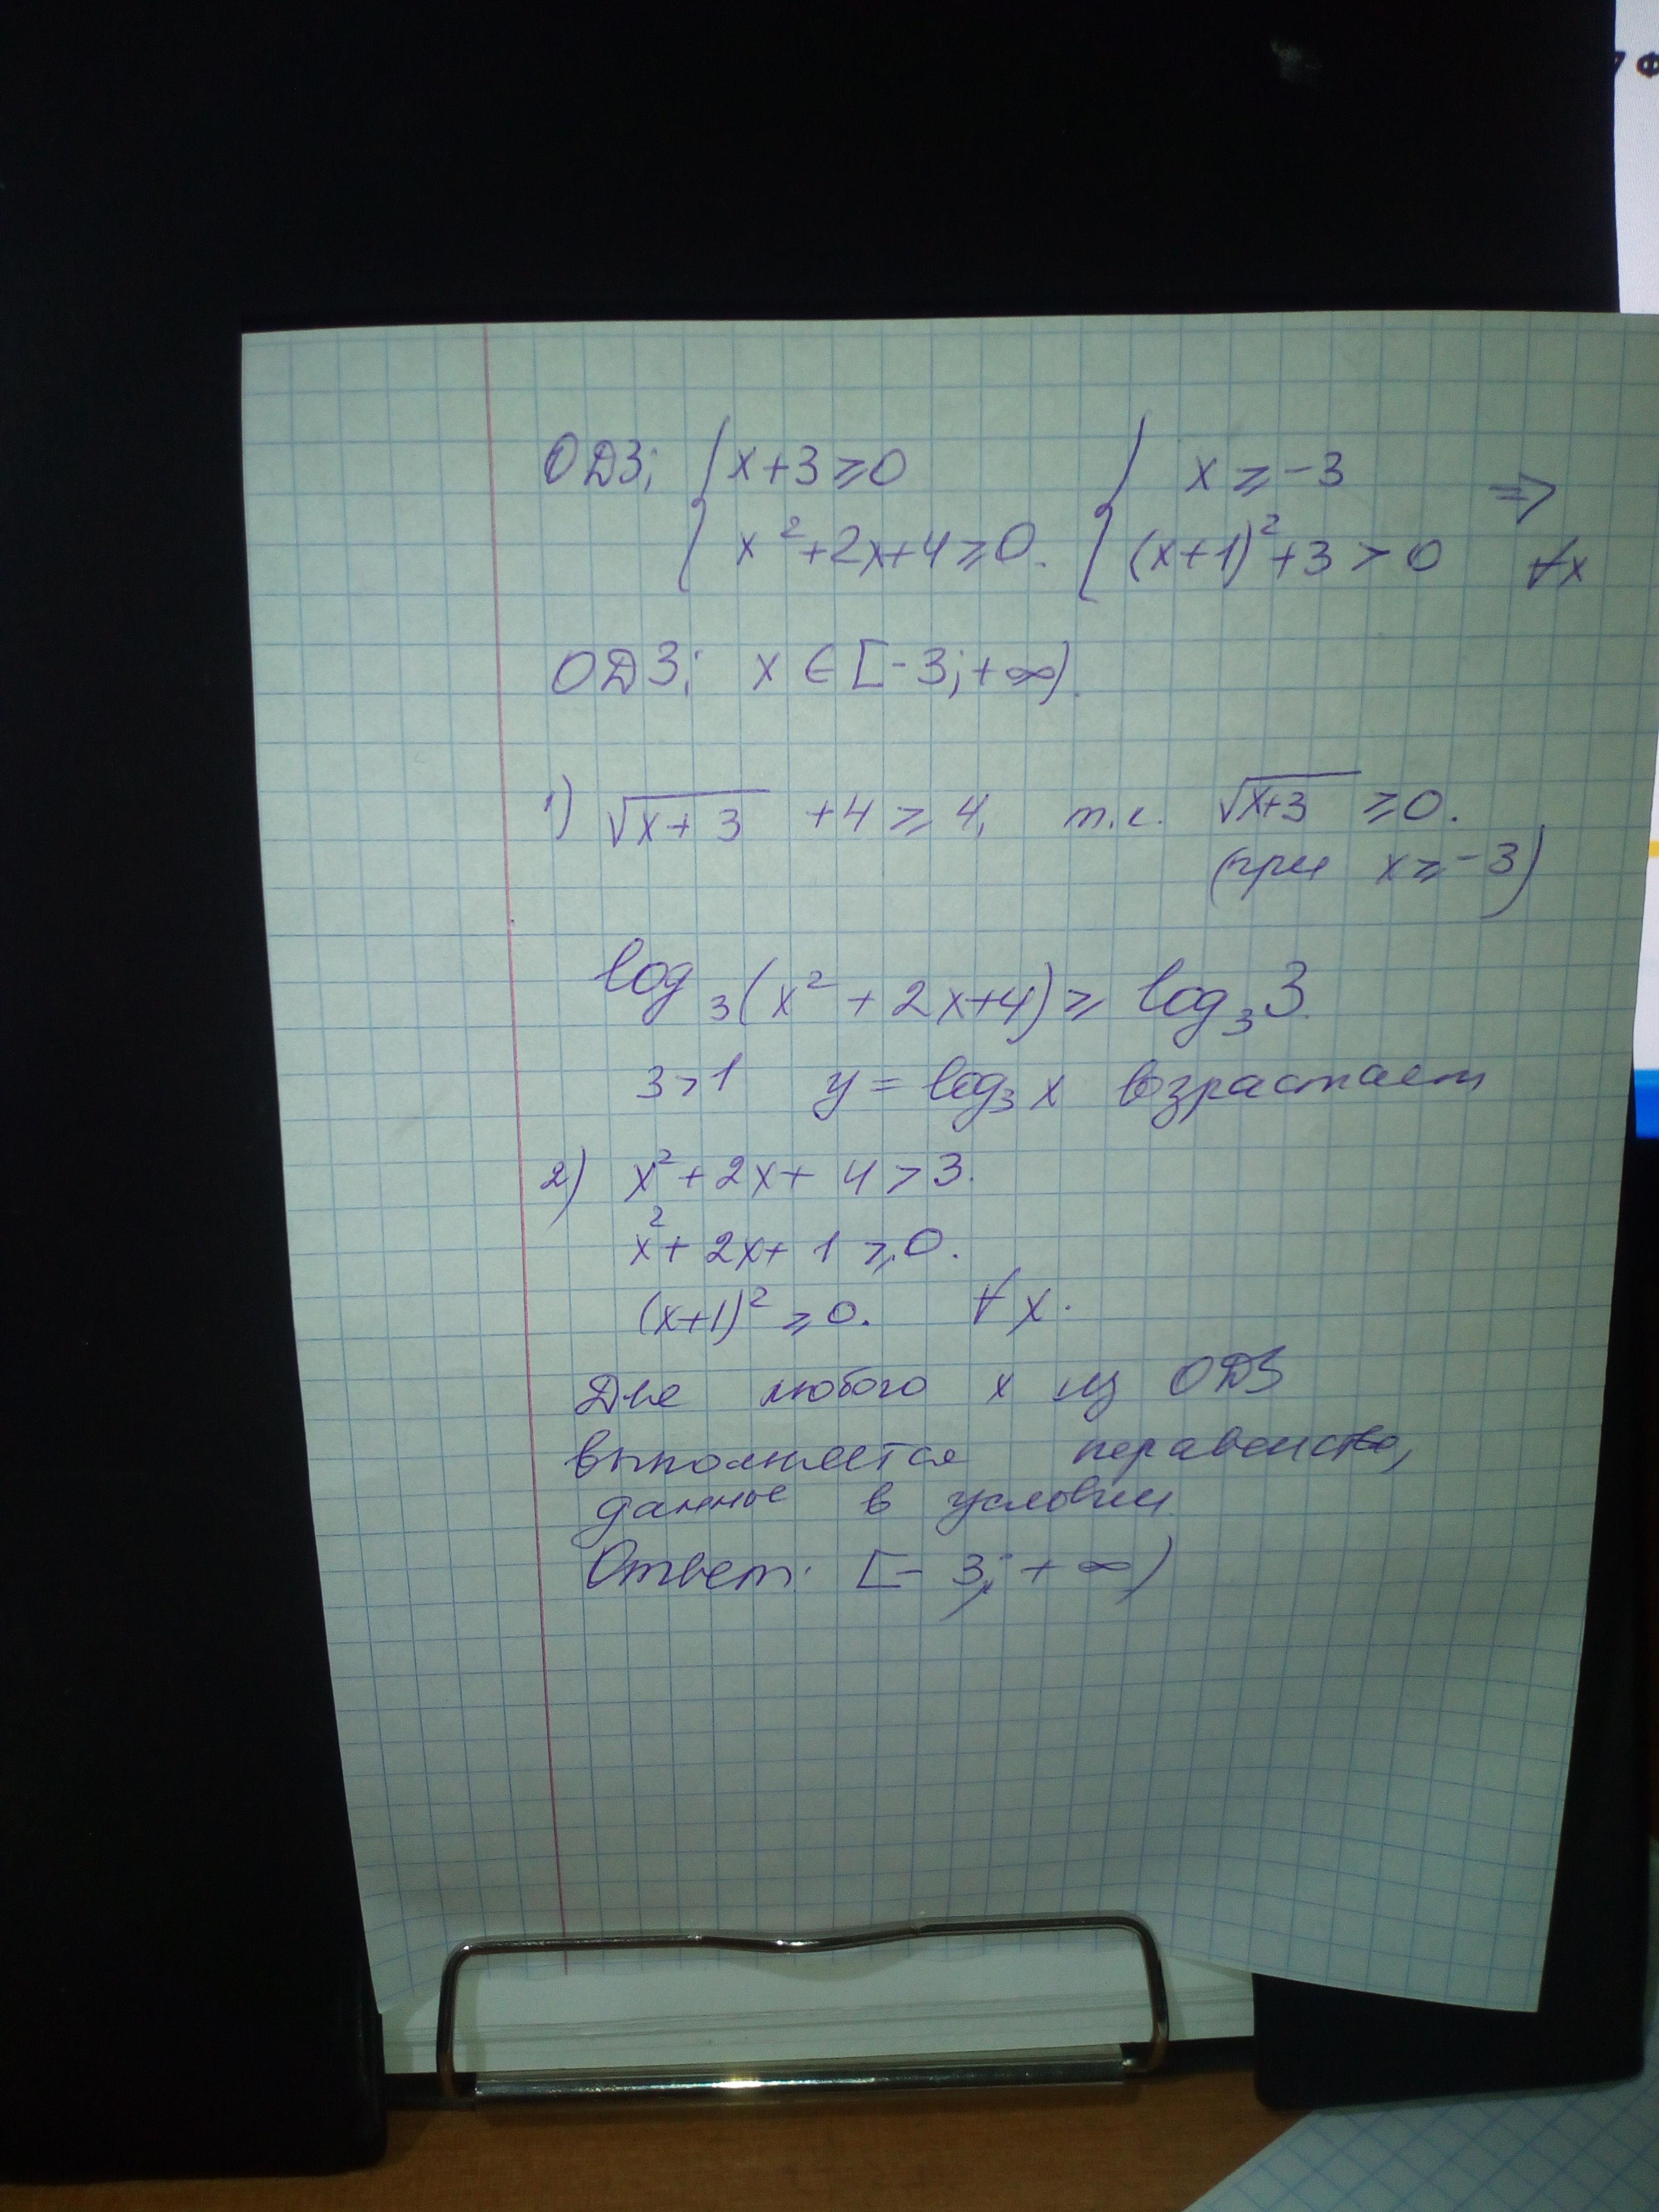 ОДЗ; { x+3 ≥ 0 { x ≥ -3 ⇒
x²+2x+4 ≥ 0. (x+1)²+3 > 0 ∀x
ОДЗ; x ∈ [-3; +∞).
1) √(x+3) +4 ≥ 4, т.к. √(x+3) ≥ 0.
(при x ≥ -3)
log₃(x² + 2x+4) ≥ log₃3.
3>1 y = log₃x возрастает
2) x² + 2x + 4 > 3.
x² + 2x + 1 ≥ 0.
(x+1)² ≥ 0. ∀x.
Для любого x из ОДЗ
выполняется неравенство,
данные в условии.
Ответ: [-3; +∞)
7 Ф